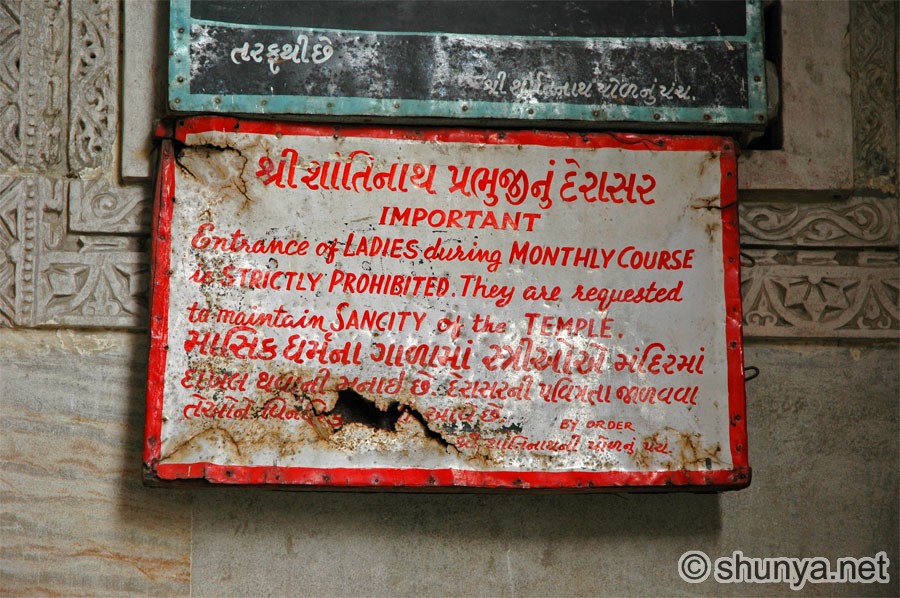 તરફથી છે
શ્રી શાંતિનાથ પોળનું પંચ.
શ્રી શાંતિનાથ પ્રભુજીનું દેરાસર
IMPORTANT
Entrance of LADIES during MONTHLY COURSE
is STRICTLY PROHIBITED. They are requested
to maintain SANCITY of the TEMPLE.
માસિક ધર્મના ગાળામાં સ્ત્રીઓએ મંદિરમાં
દાખલ થવાની મનાઇ છે. દેરાસરની પવિત્રતા જાળવવા
તેઓને આવે છે
BY ORDER
શ્રી શાંતિનાથની પોળનું પંચ.
© shunya.net